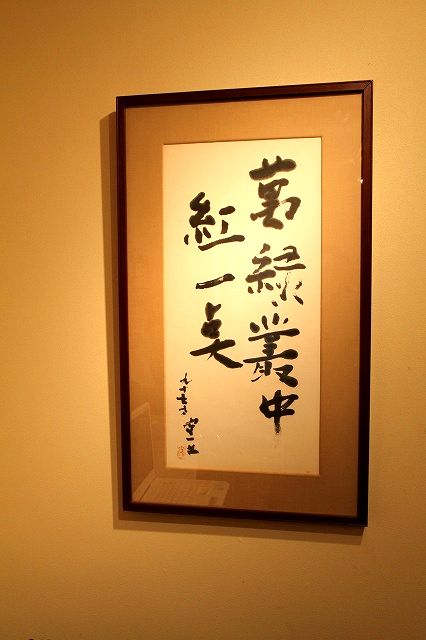 萬緑叢中
紅一点